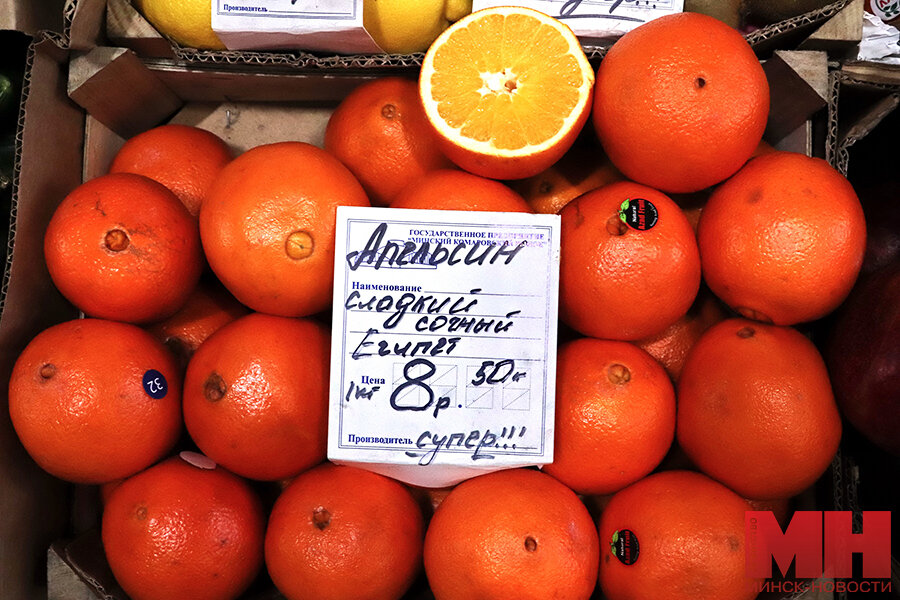 Производитель
супер!!!
ГОСУДАРСТВЕННОЕ ПРЕДПРИЯТИЕ
"МИНСКИЙ КОМАРОВСКИЙ
Апельсин
Наименование
сладкий
сочный
Египет
Цена
1кг 8р. 50к
Производитель супер!!!
Natural
32
Natural
МН
МИНСК-НОВОСТИ